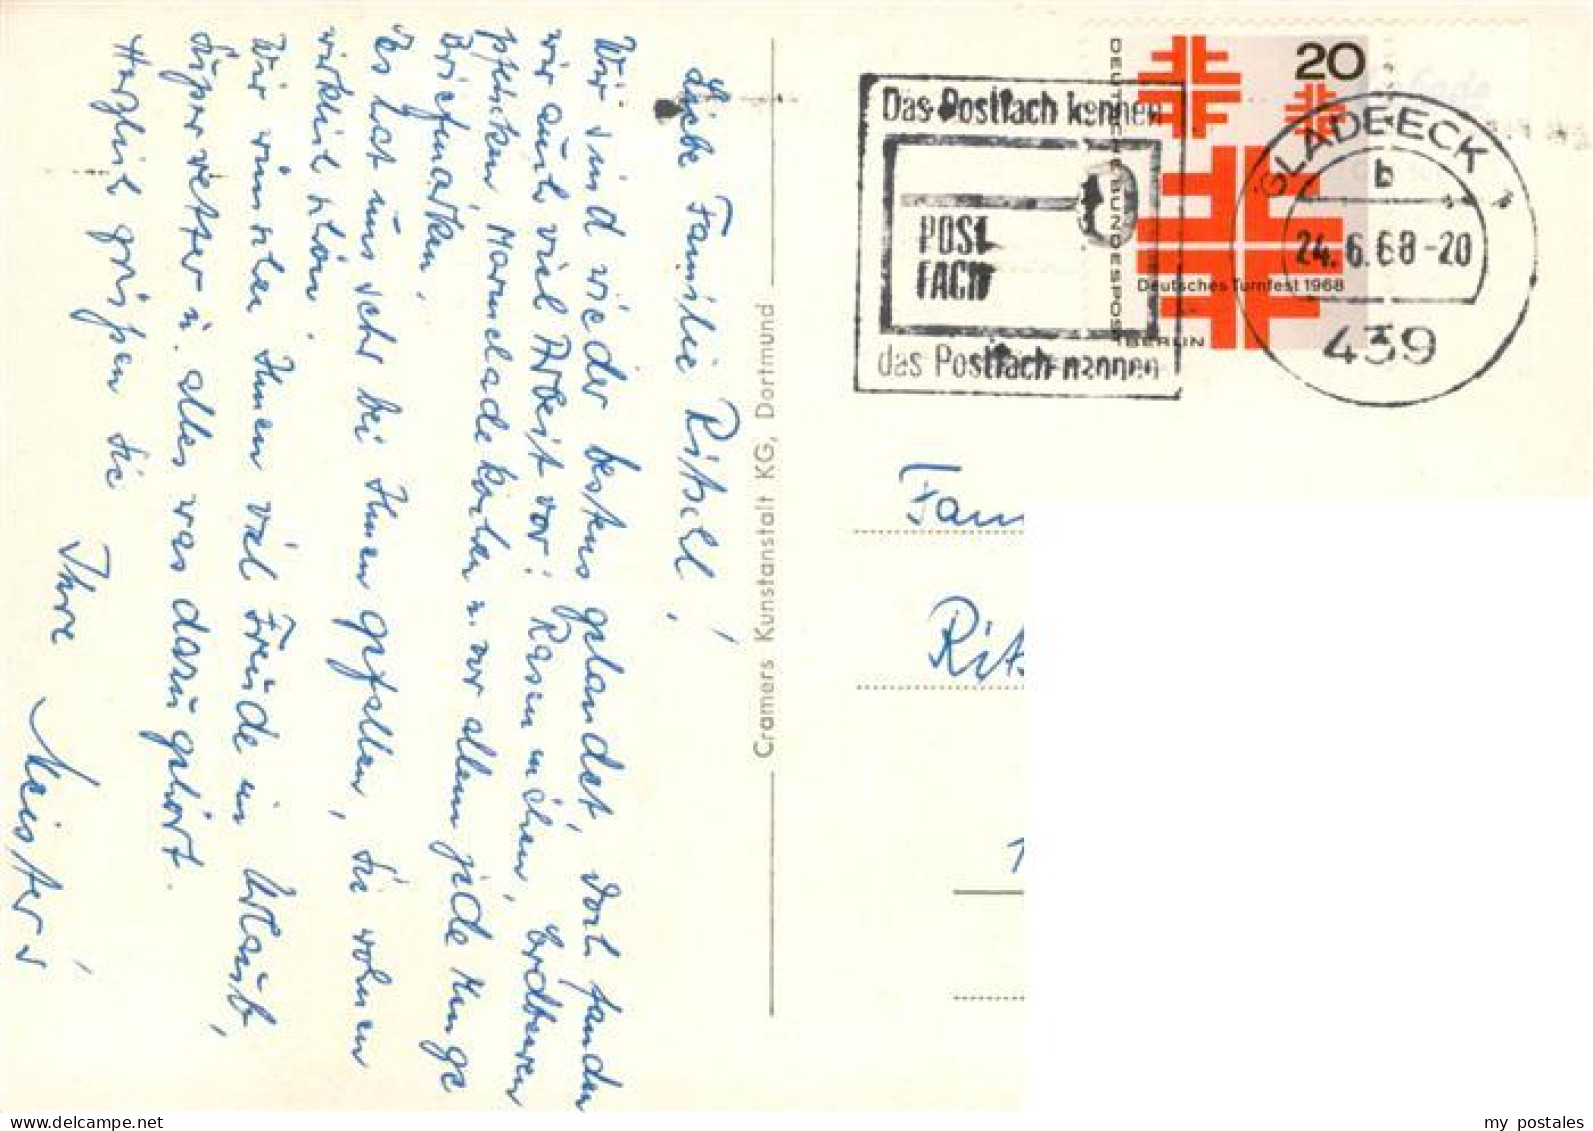 Liebe Familie Ritsch!
Wir sind wieder bestens gelandet, doch fanden
wir auch viel Arbeit vor: Rasen mähen, Erdbeeren
pflücken, Marmelade kochen u. vor allem jede Menge
Briefmarken.
Es hat uns sehr bei Ihnen gefallen, Sie wohnen
wirklich schön!
Wir wünschen Ihnen viel Freude im Urlaub,
Superwetter u. alles was dazu gehört.
Herzlich grüßen Sie
Ihre
Meister's
Cramers Kunstanstalt KG, Dortmund
Das Postfach kennen
POST
FACH
das Postfach nennen
DEUTSCHE BUNDESPOST
BERLIN
20
Deutsches Turnfest 1968
GLADBECK 1
b
24.6.68-20
439
Fam
Rits
1
my postales